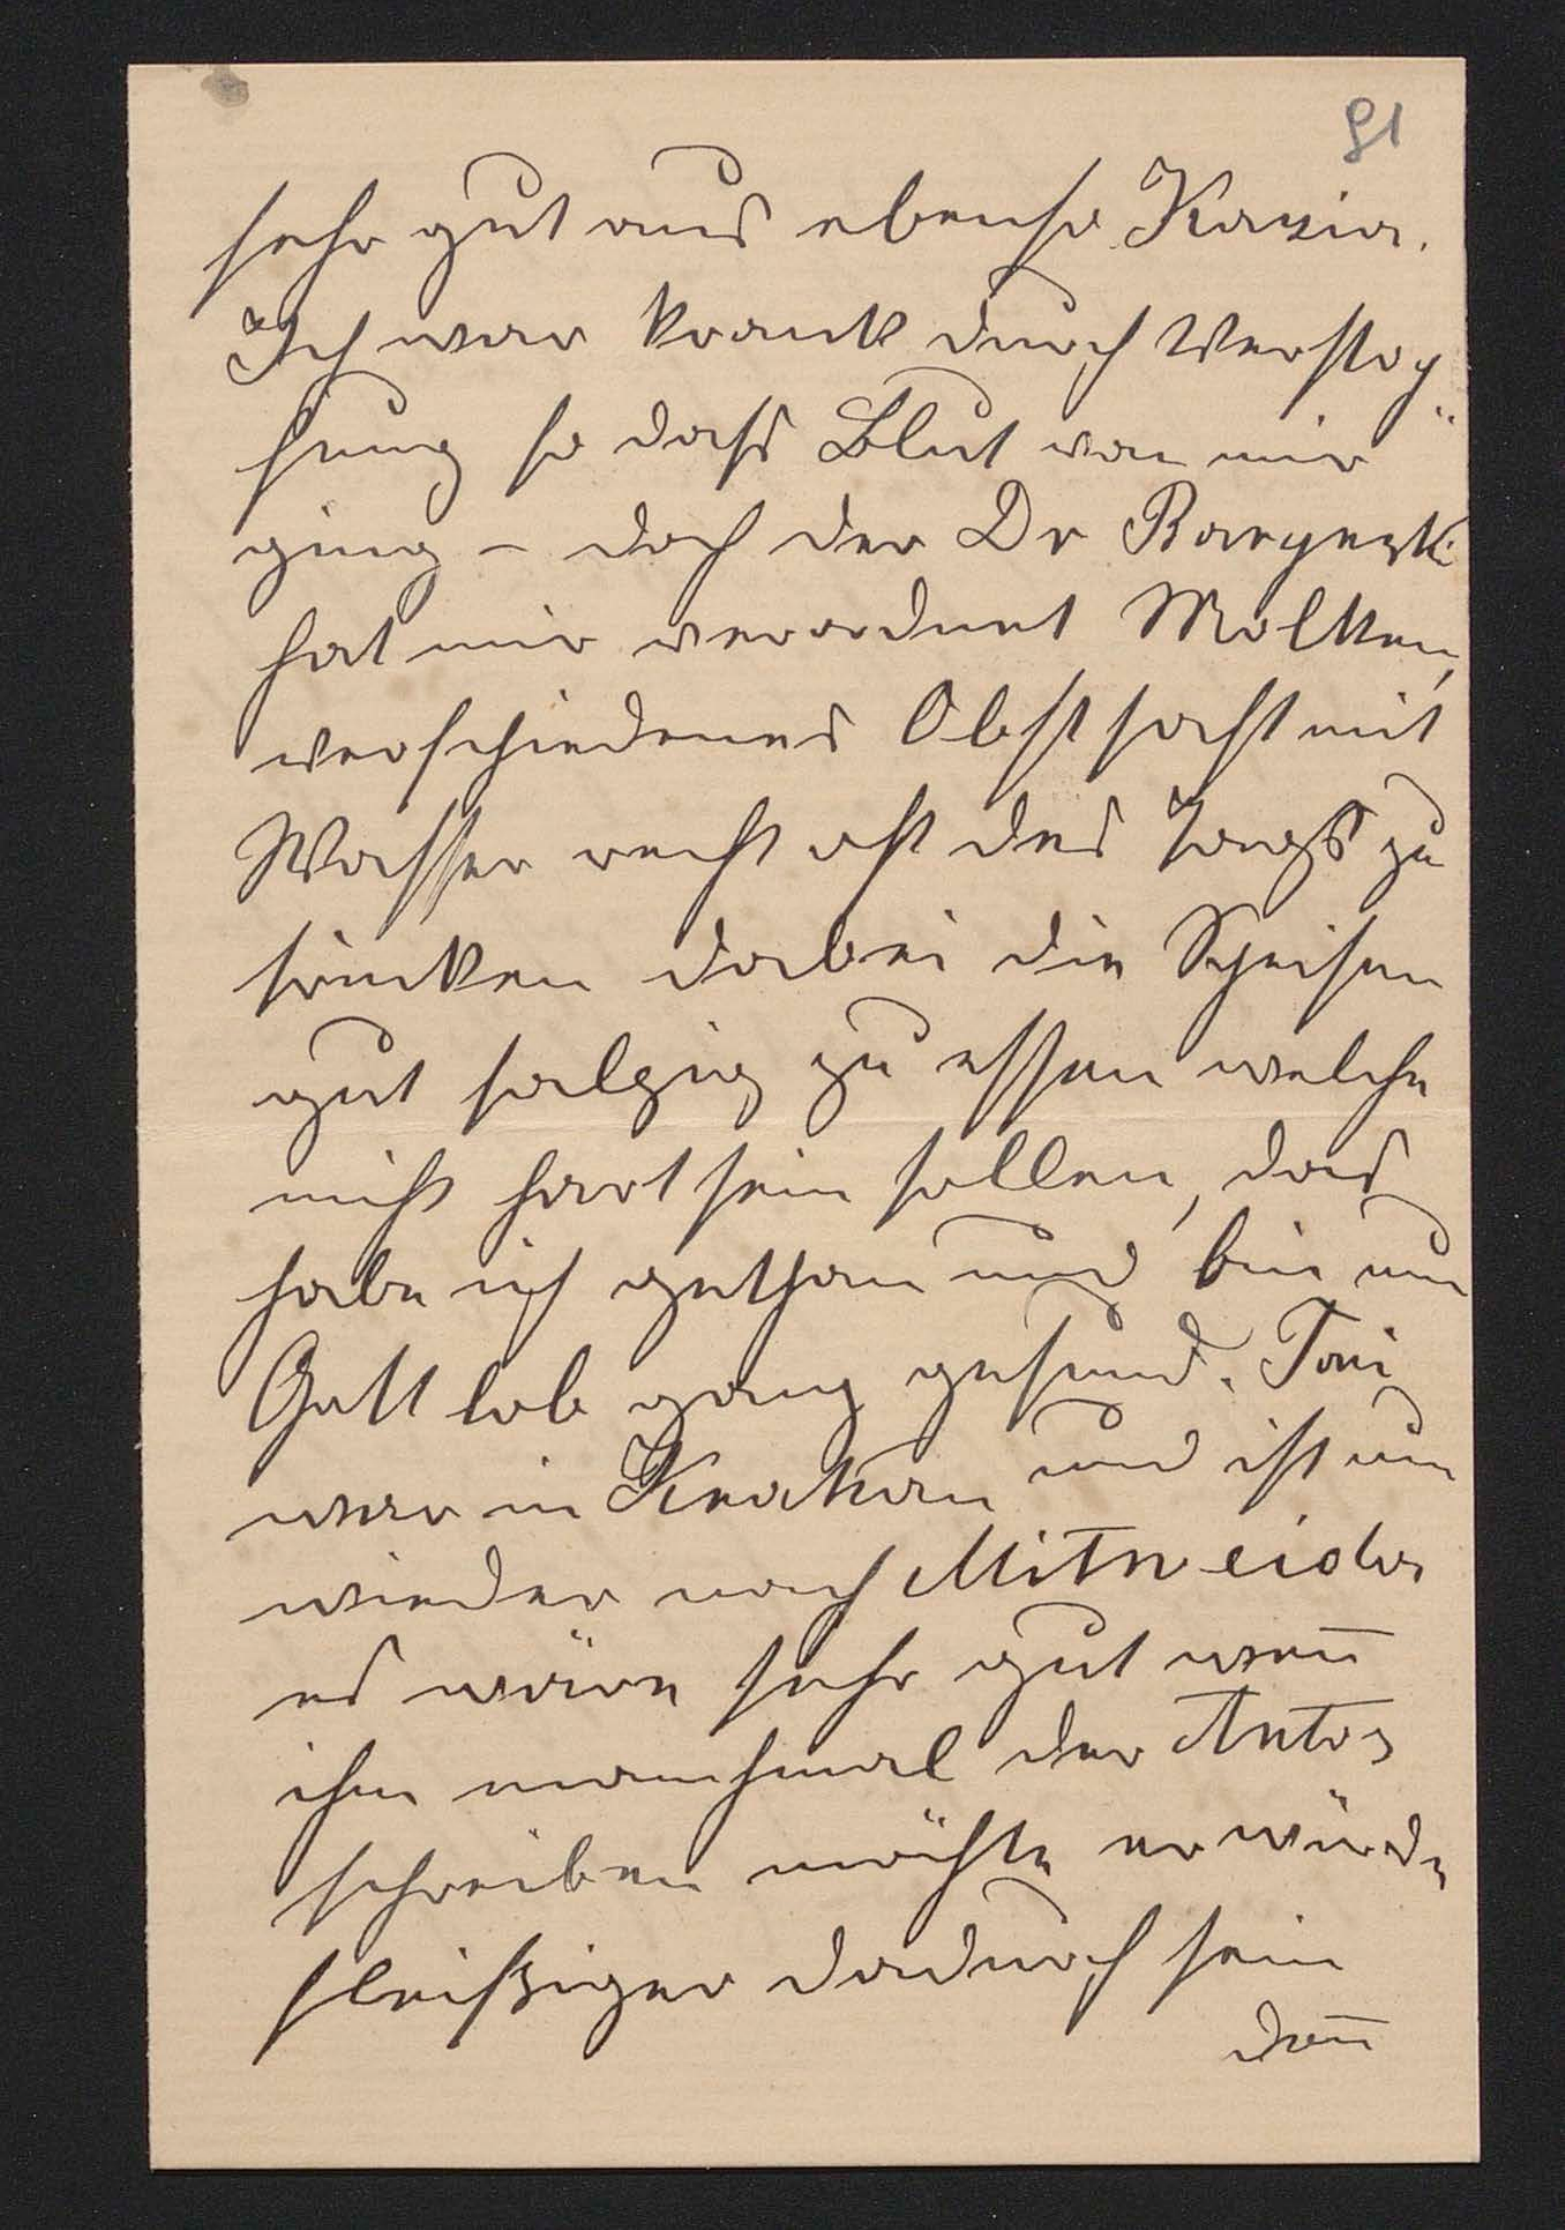 91
sehr gut aus ebenso Kazia.
Ich war krank durch Verstop„
fung so dass Blut von mir
ging – doch der Dr
hat mir verordnet Molken,
verschiedenes Obstsaft mit
Wasser recht oft des Tags zu
trinken dabei die Speisen
gut salzig zu essen welche
nicht hart sein sollen, das
habe ich gethan und bin nun
Gott lob ganz gesund. Toni
war in Krakau und ist nun
wieder nach Mitweida
es wäre sehr gut wen̅
ihm manchmal der Antos
schreiben möchte er würde
fleißiger dadurch sein
den̅